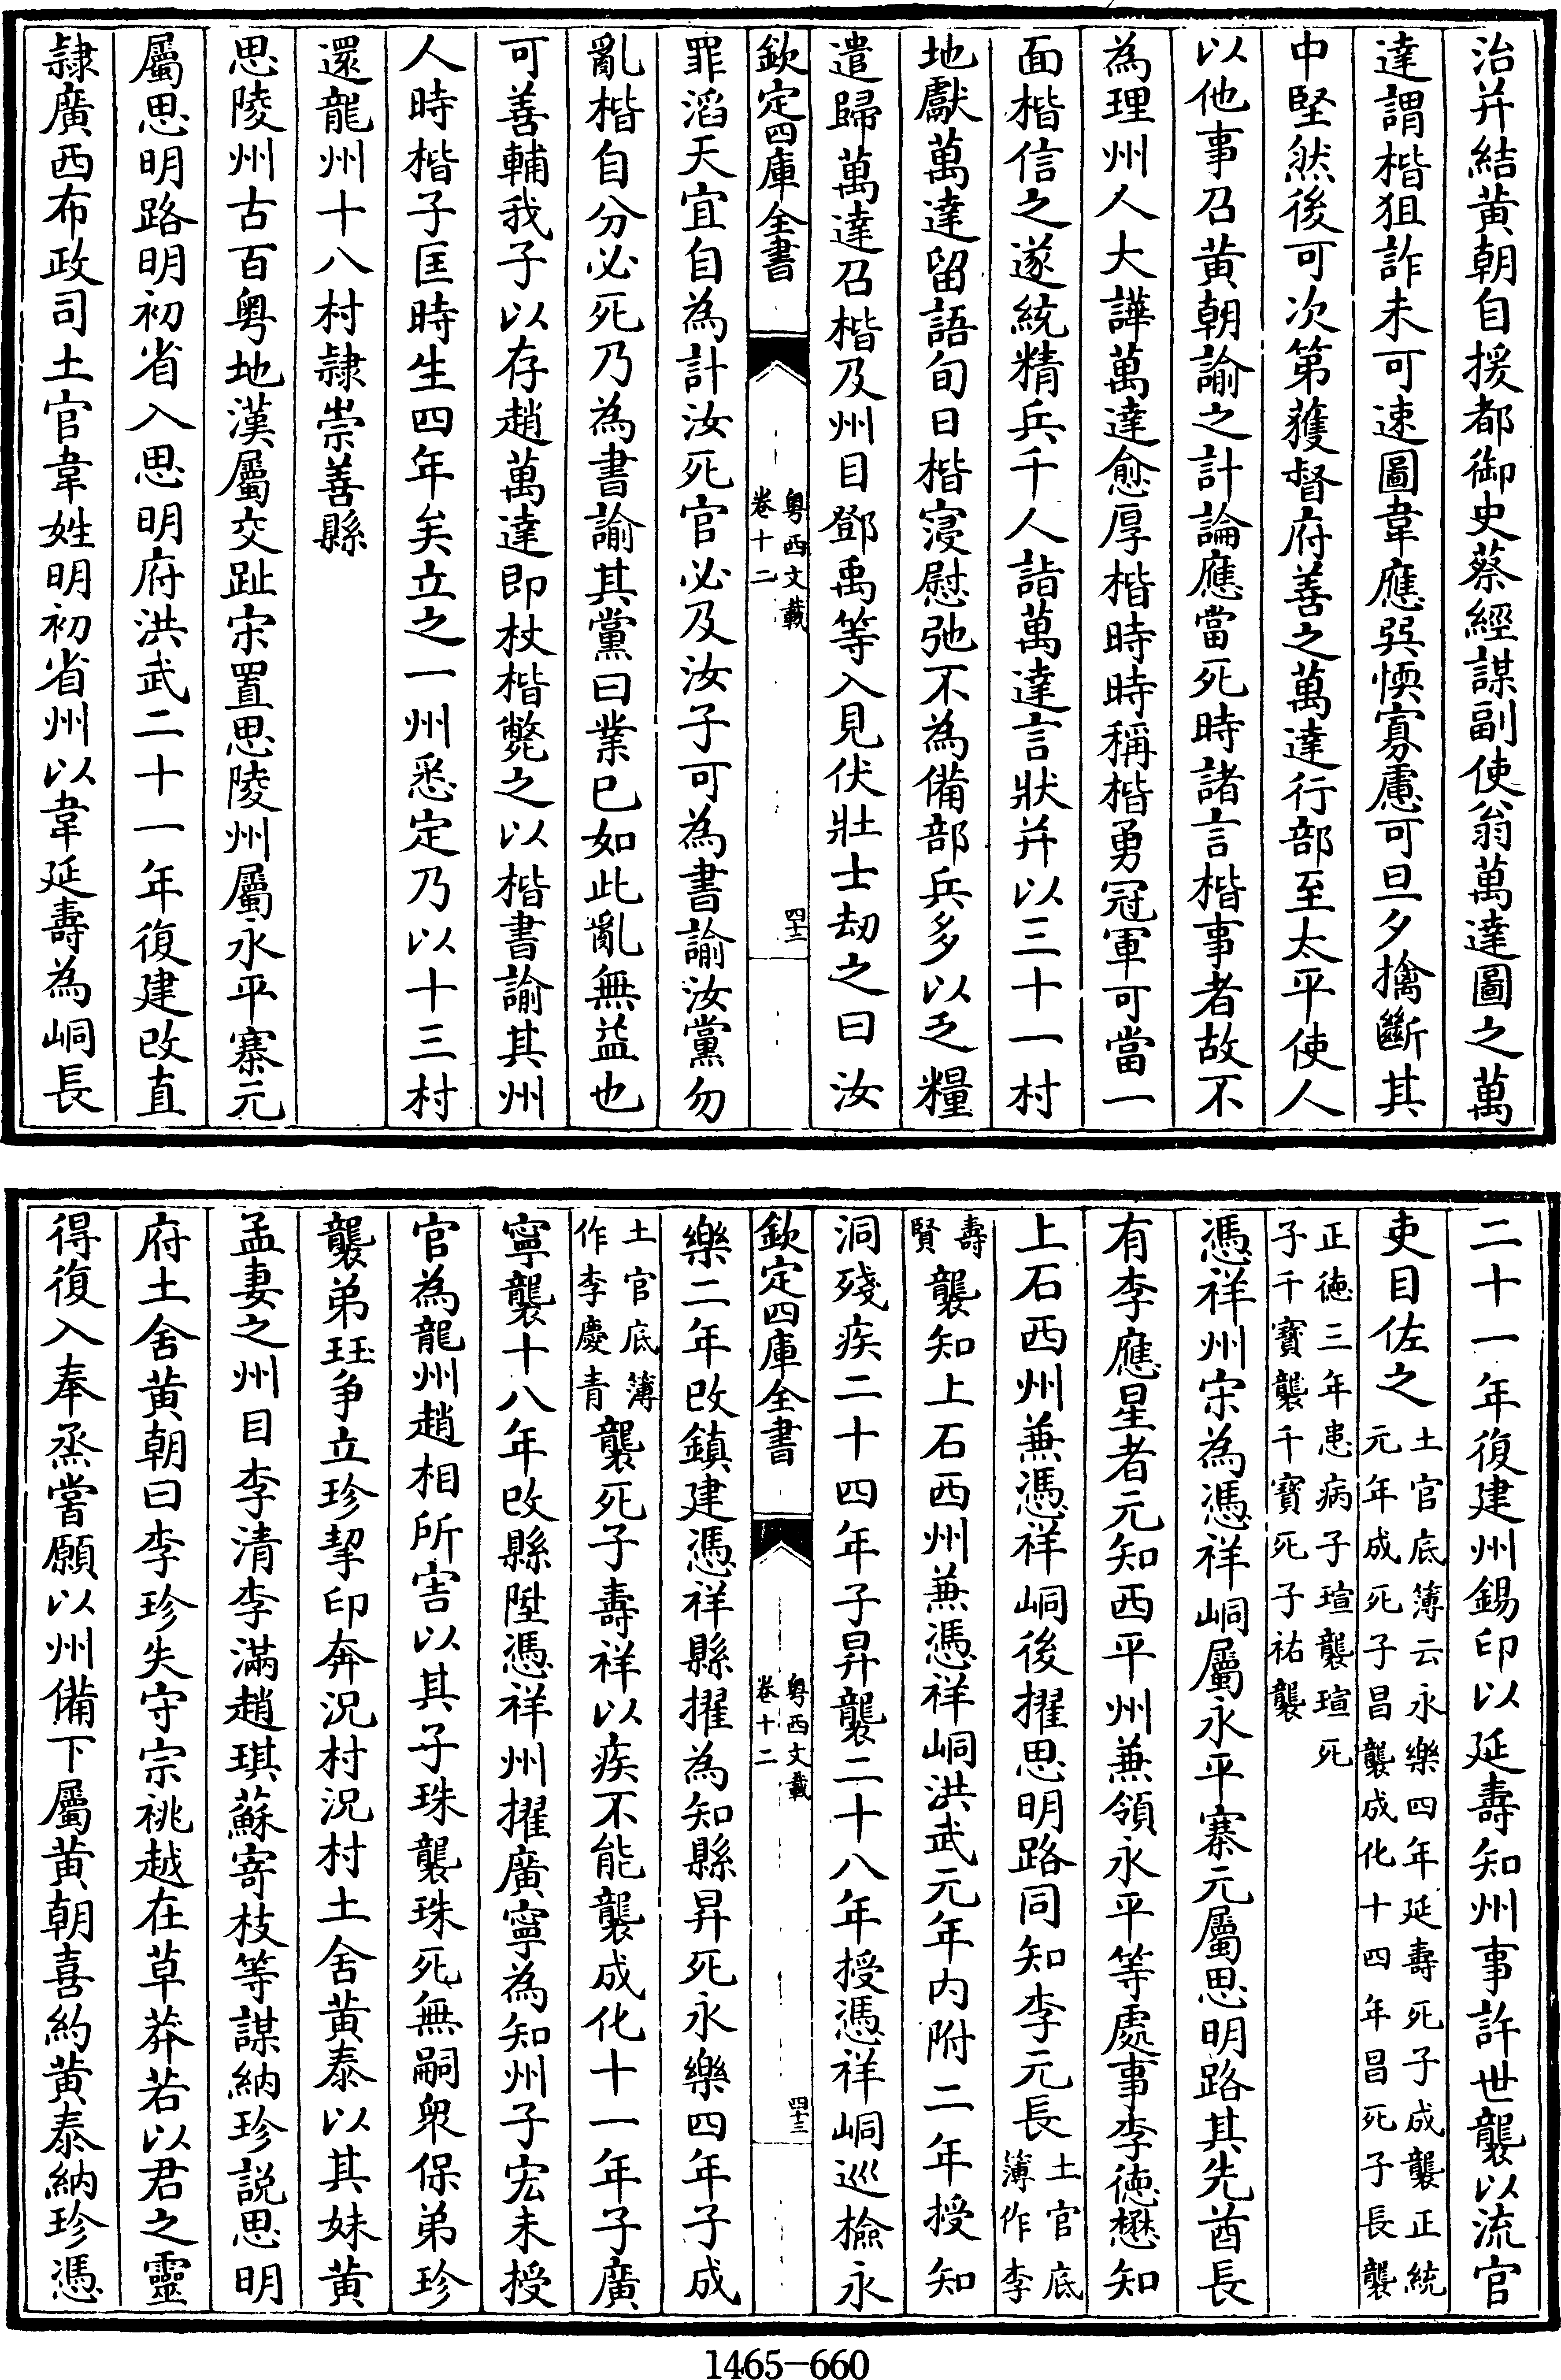 治并結黄朝自援都御史蔡經謀副使翁萬達圖之萬
達謂楷狙詐未可速圖韋應巺愞寡慮可旦夕擒斷其
中堅然後可次第䕶督府善之萬達行部至太平使人
以他事召黄朝諭之計論應當死時諸言楷事者故不
為理州人大譁萬達愈厚楷時時稱楷勇冠軍可當一
面楷信之遂統精兵千人詣萬達言狀并以三十一村
地獻萬達留語旬日楷寖慰弛不為備部兵多以乏糧
遣歸萬達召楷及州目鄧禹等入見伏壯士刼之曰汝
欽定四庫全書
粤西文載
卷十二
四十二
罪滔天宜自為計汝死官必及汝子可為書諭汝黨勿
亂楷自分必死乃為書諭其黨曰業已如此亂無益也
可善輔我子以存趙萬達即杖楷斃之以楷書諭其州
人時楷子匡時生四年矣立之一州悉定乃以十三村
還龍州十八村隷崇善縣
思陵州古百粤地漢屬交趾宋置思陵州屬永平寨元
屬思明路明初省入思明府洪武二十一年復建改直
隷廣西布政司土官韋姓明初省州以韋延壽為峒長
二十一年復建州錫印以延壽知州事許世襲以流官
吏目佐之
土官底簿云永樂四年延壽死子成襲正統
元年成死子昌襲成化十四年昌死子長襲
正德三年患病子瑄襲瑄死
子千寶襲千寶死子祐襲
憑祥州宋為憑祥峒屬永平寨元屬思明路其先酋長
有李應星者元知西平州兼領永平等處事李德懋知
上石西州兼憑祥峒後擢思明路同知李元長
土官底
簿作李
壽
賢
襲知上石西州兼憑祥峒洪武元年内附二年授知
洞殘疾二十四年子昇襲二十八年授憑祥峒巡檢永
欽定四庫全書
粤西文載
卷十二
四十三
樂二年改鎮建憑祥縣擢為知縣昇死永樂四年子成
土官底簿
作李慶青
襲死子壽祥以疾不能襲成化十一年子廣
寧襲十八年改縣陞憑祥州擢廣寧為知州子宏未授
官為龍州趙相所害以其子珠襲珠死無嗣衆保弟珍
襲弟珏争立珍挈印奔况村况村土舍黄泰以其妹黄
孟妻之州目李清李滿趙琪蘇寄枝等謀納珍説思明
府土舍黄朝曰李珍失守宗祧越在草莽若以君之靈
得復入奉烝嘗願以州備下屬黄朝喜約黄泰納珍憑
1465-660